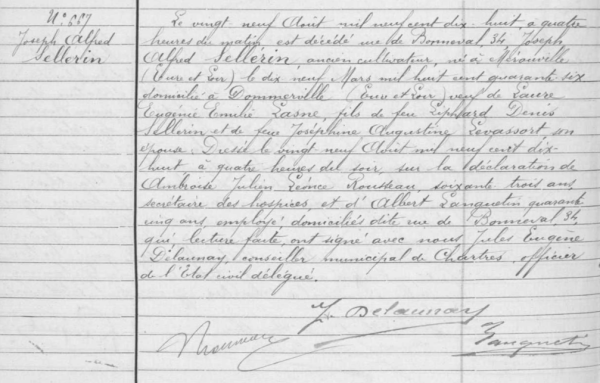 N° 557
Joseph Alfred
Sellerin
Le vingt neuf Août mil neuf cent dix-huit à quatre
heures du matin est décédé rue de Bonneval 34, Joseph
Alfred Sellerin, ancien cultivateur, né à Mérouville
(Eure et Loir) le dix neuf Mars mil huit cent quarante six
domicilié à Dommerville (Eure et Loir) veuf de Laure
Eugénie Emilie Lasne, fils de feu Liphard Denis
Sellerin et de feue Joséphine Augustine Levassort, son
épouse. Dressé le vingt neuf Août mil neuf cent dix-
huit à quatre heures du soir, sur la déclaration de
Ambroise Julien Léonce Rousseau, soixante trois ans
secrétaire des hospices, et d'Albert Languetin, quarante
cinq ans, employé, domiciliés dite rue de Bonneval 34,
qui, lecture faite, ont signé avec nous Jules Eugène
Delaunay, conseiller municipal de Chartres, officier
de l'Etat civil délégué.
J. Delaunay